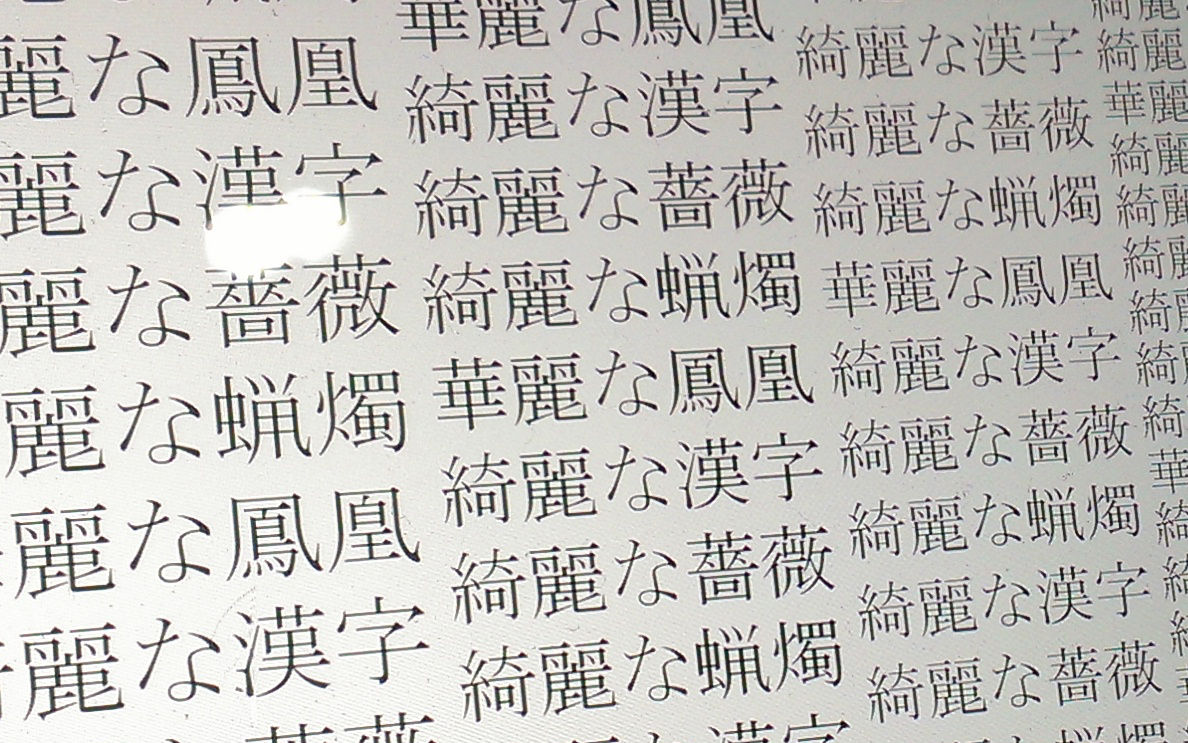 麗な鳳凰
麗な漢字
麗な薔薇
麗な蝋燭
麗な鳳凰
麗な漢字
華麗な鳳凰
綺麗な漢字
綺麗な薔薇
綺麗な蝋燭
華麗な鳳凰
綺麗な漢字
綺麗な薔薇
綺麗な蝋燭
綺麗な漢字
綺麗な薔薇
綺麗な蝋燭
華麗な鳳凰
綺麗な漢字
綺麗な薔薇
綺麗な蝋燭
綺麗な漢字
綺麗な薔薇
綺麗
綺麗
華麗
綺麗
綺麗
綺麗
綺
綺
綺
華
綺